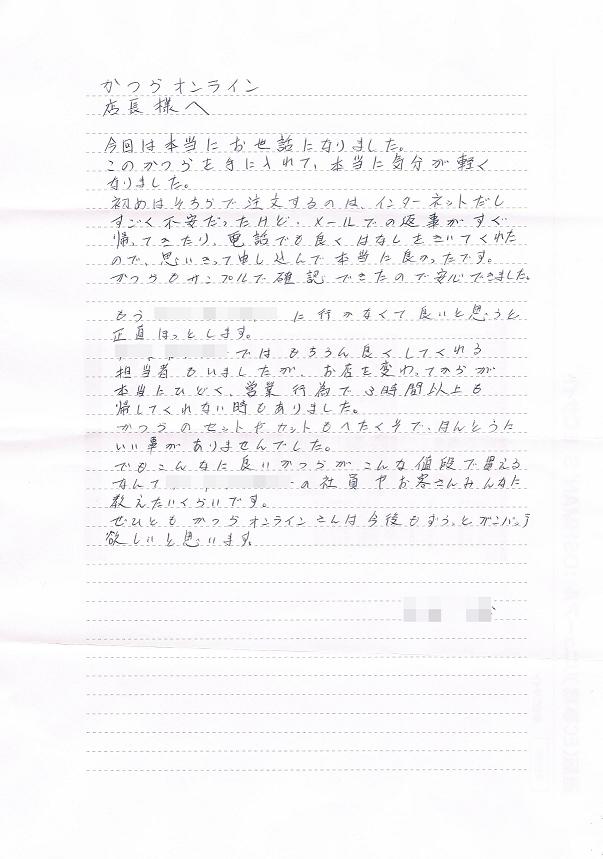 かつらオンライン
店長様へ
今回は本当にお世話になりました。
このかつらを手に入れて、本当に気分が軽く
なりました。
初めはそちらで注文するのは、インターネットだし
すごく不安だったけど、メールでの返事がすぐ
帰ってきたり、電話でも良くはなしをきいてくれた
ので、思いきって申し込んで本当に良かったです。
かつらもサンプルで確認できたので安心できました。
もう に行かなくて良いと思うと
正直ほっとします。
ではもちろん良くしてくれる
担当者もいましたが、お店を変わってからが
本当にひどく、営業行為で3時間以上も
帰してくれない時もありました。
かつらのセットやカットもへたくそで、ほんとうに
いい事がありませんでした。
でもこんなに良いかつらが、こんな値段で買える
なんて の社員やお客さんみんなに
教えたいくらいです。
ぜひともかつらオンラインさんは今後もずうっとガンバッテ
欲しいと思います。